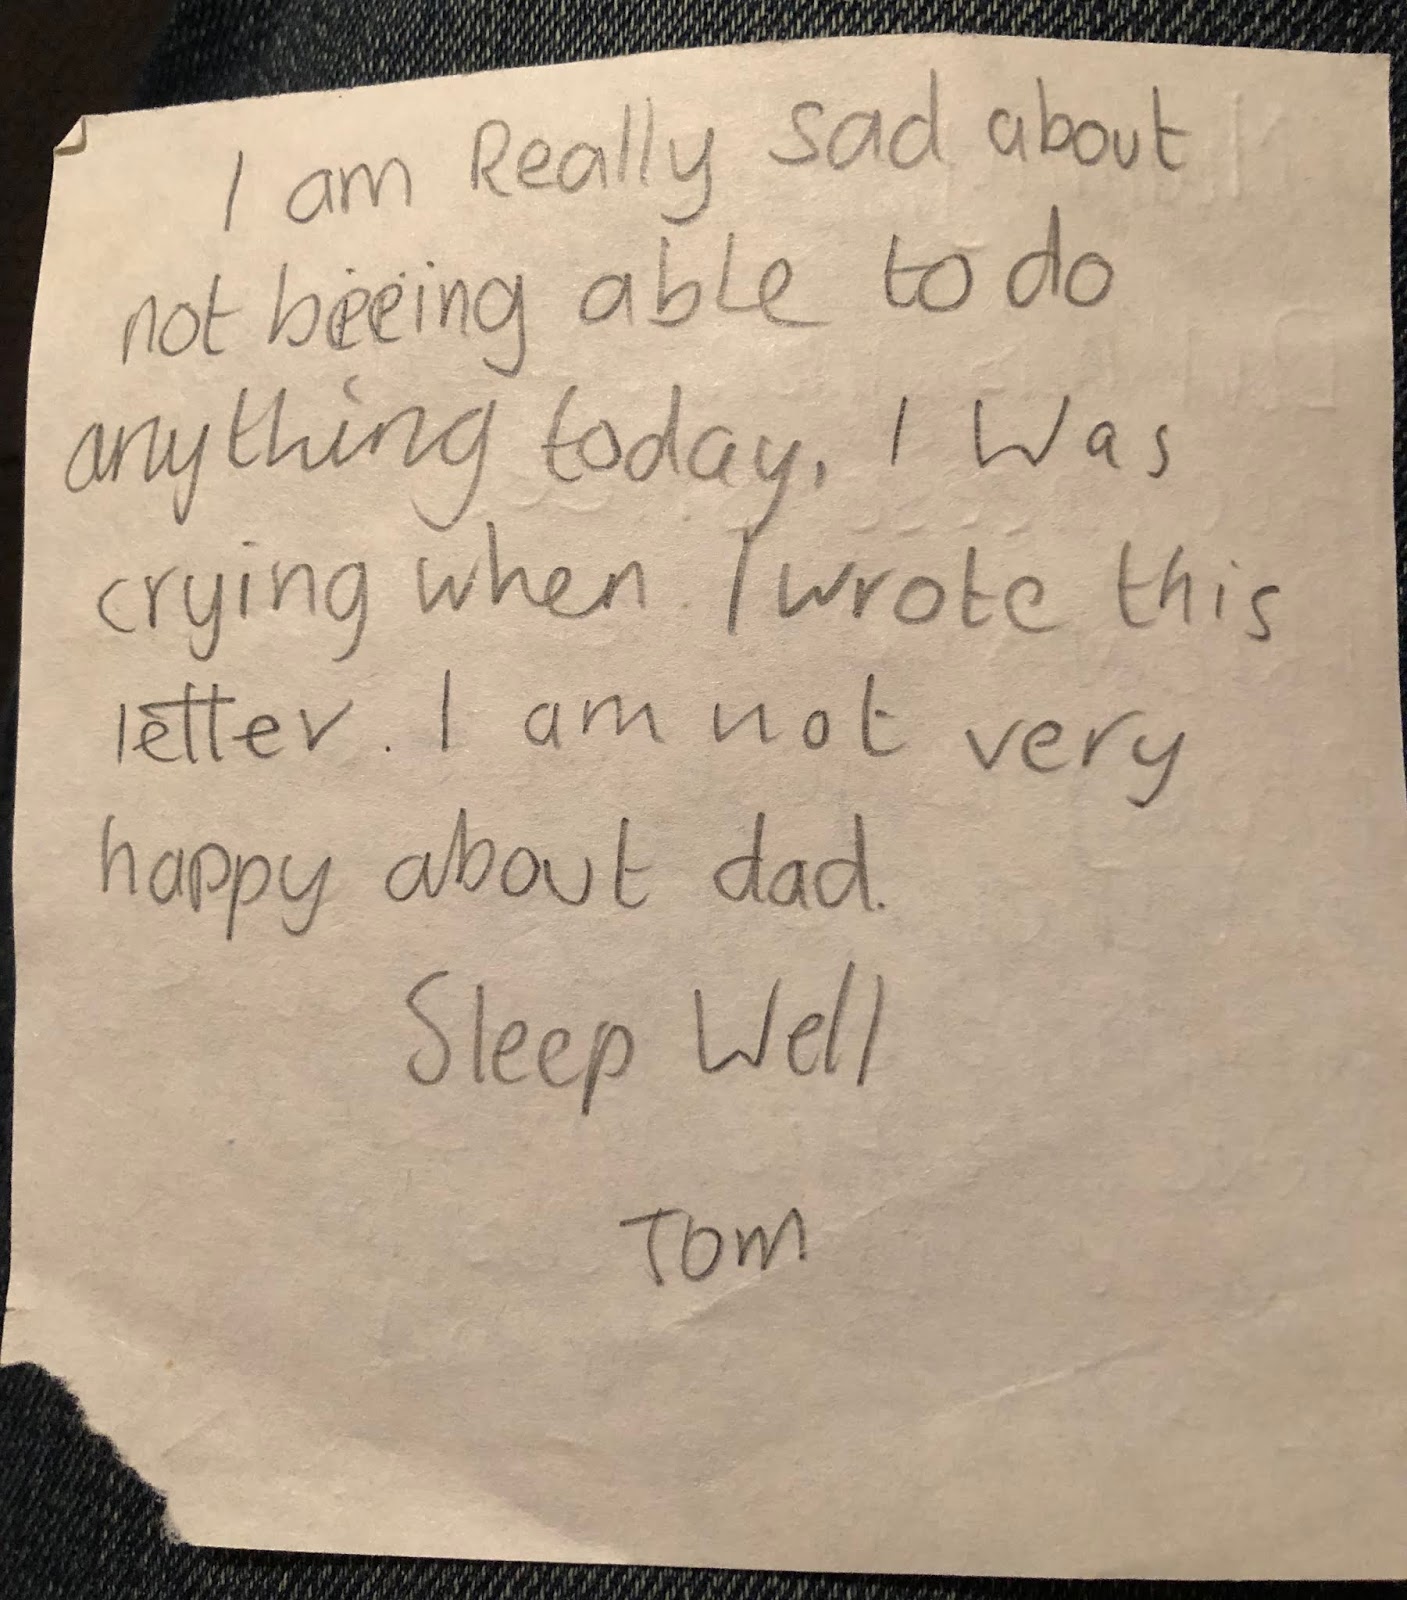 I am Really sad about
not beeing able to do
anything today. I Was
crying when I wrote this
letter. I am not very
happy about dad.
Sleep Well
Tom